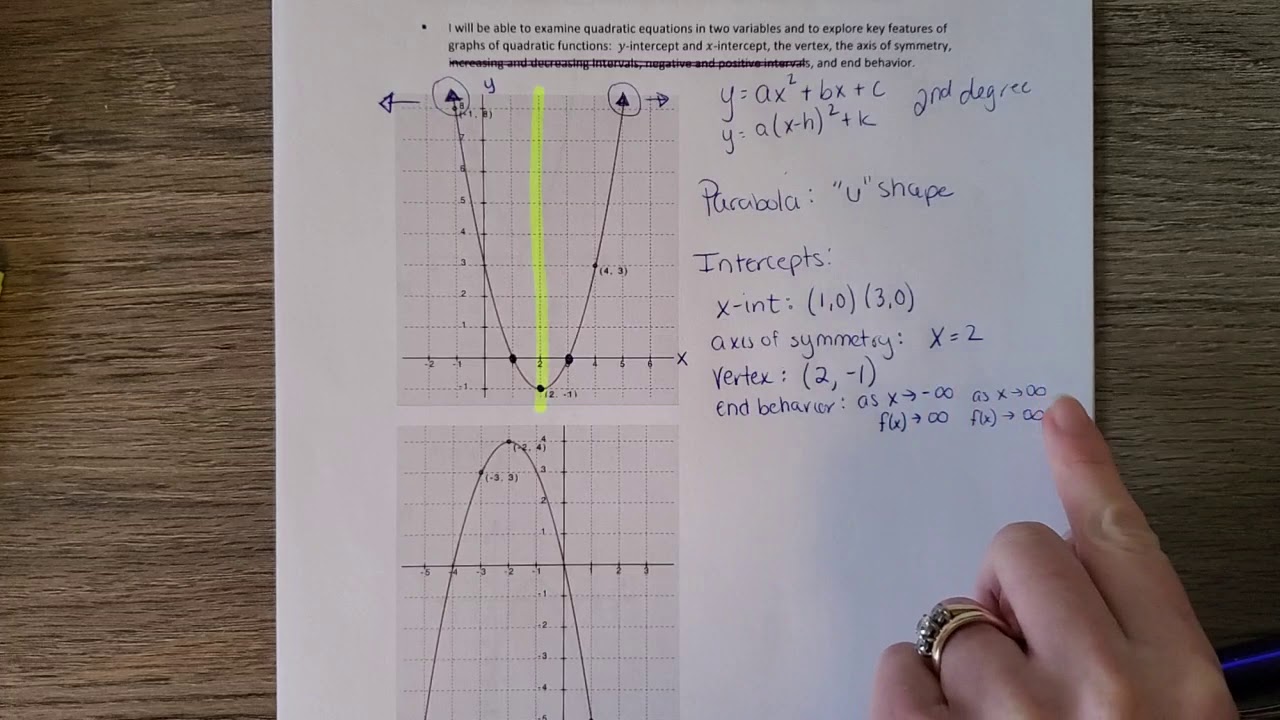 • I will be able to examine quadratic equations in two variables and to explore key features of
graphs of quadratic functions: y-intercept and x-intercept, the vertex, the axis of symmetry,
increasing and decreasing intervals, negative and positive intervals, and end behavior.
y = ax² + bx + c 2nd degree
y = a(x-h)² + k
Parabola: "U" shape
Intercepts:
x-int: (1,0) (3,0)
axis of symmetry: X = 2
Vertex: (2, -1)
end behavior: as x → -∞ as x → ∞
f(x) → ∞ f(x) → ∞
y
8
(-1, 8)
7
6
5
4
3
(4, 3)
2
1
-2 -1 2 4 5 6 X
-1
(2, -1)
4
(-2, 4)
3
(-3, 3)
2
1
-5 -4 -3 -2 -1 1 2 3
-1
-2
-3
-4
-5